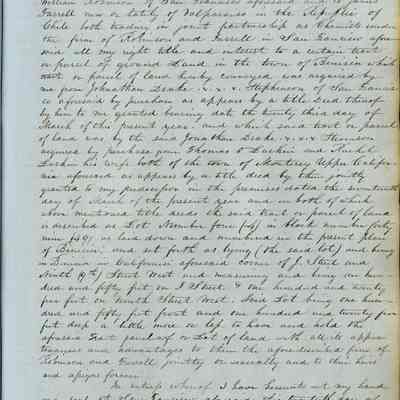 William Robinson of San Francisco aforesaid and to James
Farrell now or lately of Valparaiso in the Republic of
Chile both trading in joint partnership as Chemists under
the firm of Robinson and Farrell in San Francisco afore
said all my right title and interest to a certain tract
or parcel of ground & land in the town of Benicia which
tract or parcel of land hereby conveyed was acquired by
me from Johnathan Drake Stephenson of San Francis
co aforesaid by purchase as appears by a title Deed thereof
by him to me granted bearing date the twenty third day of
March of the present year and which said tract or parcel
of land was by the said Jonathan Drake Stevenson
acquired by purchase from Thomas O Larkin and Rachel
Larkin his wife both of the town of Monterey Upper Califor
nia aforesaid as appears by a title deed by them jointly
granted to my predecessor in the premises dated the seventeenth
day of March of the present year and in both of which
above mentioned title deeds the said tract or parcel of land
is described as Lot Number four (4) in block number forty
nine (49) as laid down and numbered in the present plan
of Benicia and set forth as lying (the said lot) and being
in Benicia in California aforesaid corner of J. Street and
Ninth (9th) Street West and measuring and being one hun-
dred and fifty feet on J Street & one hundred and twenty
five feet on Ninth Street West. Said Lot being one hun-
dred and fifty feet front and one hundred and twenty five
feet deep a little more or less to have and hold the
aforesaid tract parcel or Lot of land with all its appur
tenances and advantages to them the aforedescribed firm of
Robinson and Farrell jointly or severally and to their heirs
and assigns forever.
In witness whereof I have hereunto set my hand
and seal at San Francisco aforesaid this day of